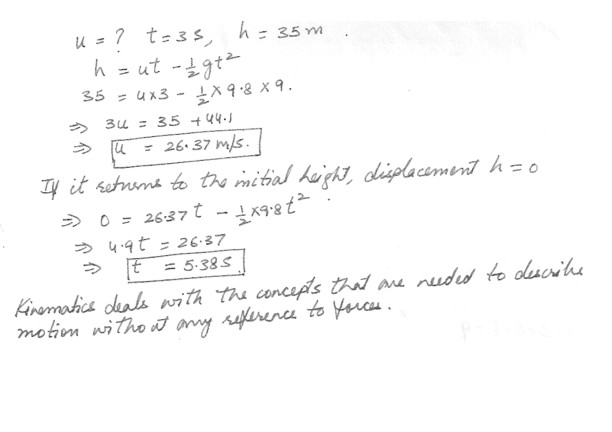 u = ? t = 3 s, h = 35 m .
h = ut - 1/2 gt²
35 = u×3 - 1/2 × 9.8 × 9.
⇒ 3u = 35 + 44.1
⇒ u = 26.37 m/s.
If it returns to the initial height, displacement h = 0
⇒ 0 = 26.37 t - 1/2 × 9.8 t² .
⇒ 4.9t = 26.37
⇒ t = 5.38 s
Kinematics deals with the concepts that are needed to describe
motion without any reference to forces.